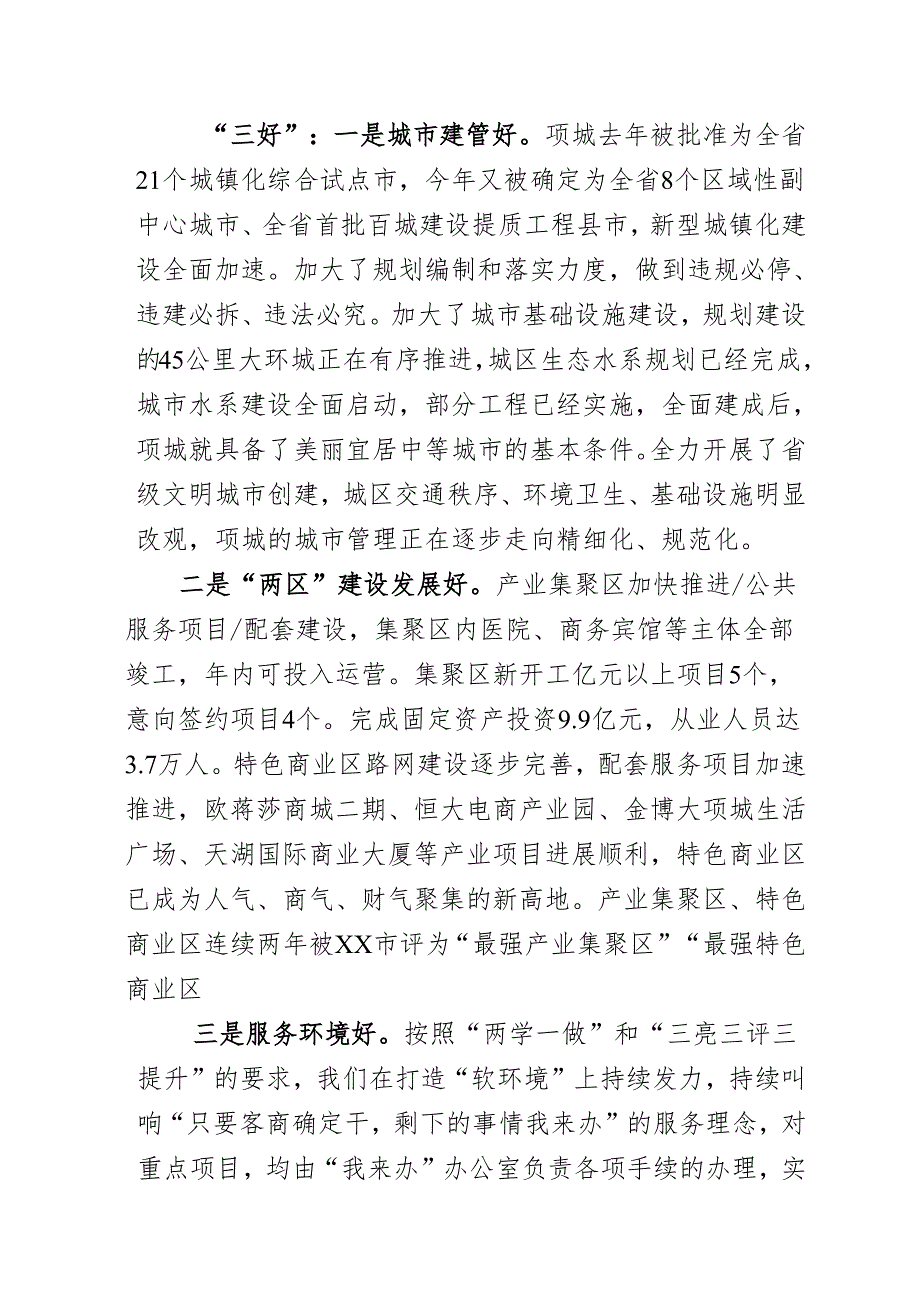 “三好”：一是城市建管好。项城去年被批准为全省
21个城镇化综合试点市，今年又被确定为全省8个区域性副
中心城市、全省首批百城建设提质工程县市，新型城镇化建
设全面加速。加大了规划编制和落实力度，做到违规必停、
违建必拆、违法必究。加大了城市基础设施建设，规划建设
的45公里大环城正在有序推进，城区生态水系规划已经完成，
城市水系建设全面启动，部分工程已经实施，全面建成后，
项城就具备了美丽宜居中等城市的基本条件。全力开展了省
级文明城市创建，城区交通秩序、环境卫生、基础设施明显
改观，项城的城市管理正在逐步走向精细化、规范化。
二是“两区”建设发展好。产业集聚区加快推进/公共
服务项目/配套建设，集聚区内医院、商务宾馆等主体全部
竣工，年内可投入运营。集聚区新开工亿元以上项目5个，
意向签约项目4个。完成固定资产投资9.9亿元，从业人员达
3.7万人。特色商业区路网建设逐步完善，配套服务项目加速
推进，欧蒋莎商城二期、恒大电商产业园、金博大项城生活
广场、天湖国际商业大厦等产业项目进展顺利，特色商业区
已成为人气、商气、财气聚集的新高地。产业集聚区、特色
商业区连续两年被XX市评为“最强产业集聚区”“最强特色
商业区
三是服务环境好。按照“两学一做”和“三亮三评三
提升”的要求，我们在打造“软环境”上持续发力，持续叫
响“只要客商确定干，剩下的事情我来办”的服务理念，对
重点项目，均由“我来办”办公室负责各项手续的办理，实